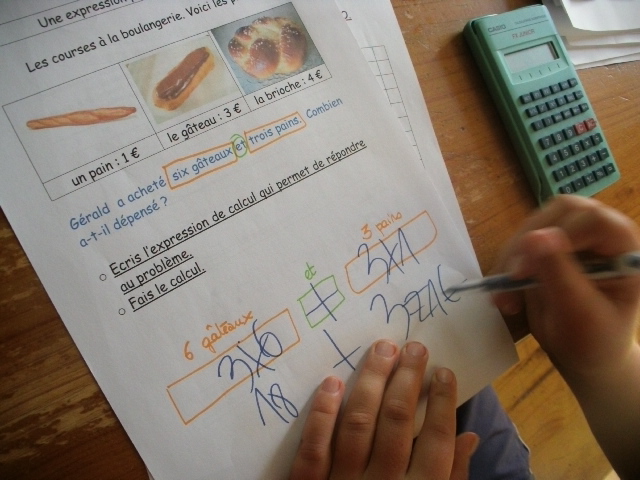 Une expression
Les courses à la boulangerie. Voici les p
un pain : 1 €
le gâteau : 3 €
la brioche : 4 €
Gérald a acheté six gâteaux et trois pains. Combien
a-t-il dépensé ?
Ecris l'expression de calcul qui permet de répondre
au problème.
Fais le calcul.
6 gâteaux et 3 pains
3x6 + 3x1
18 + 3
CASIO